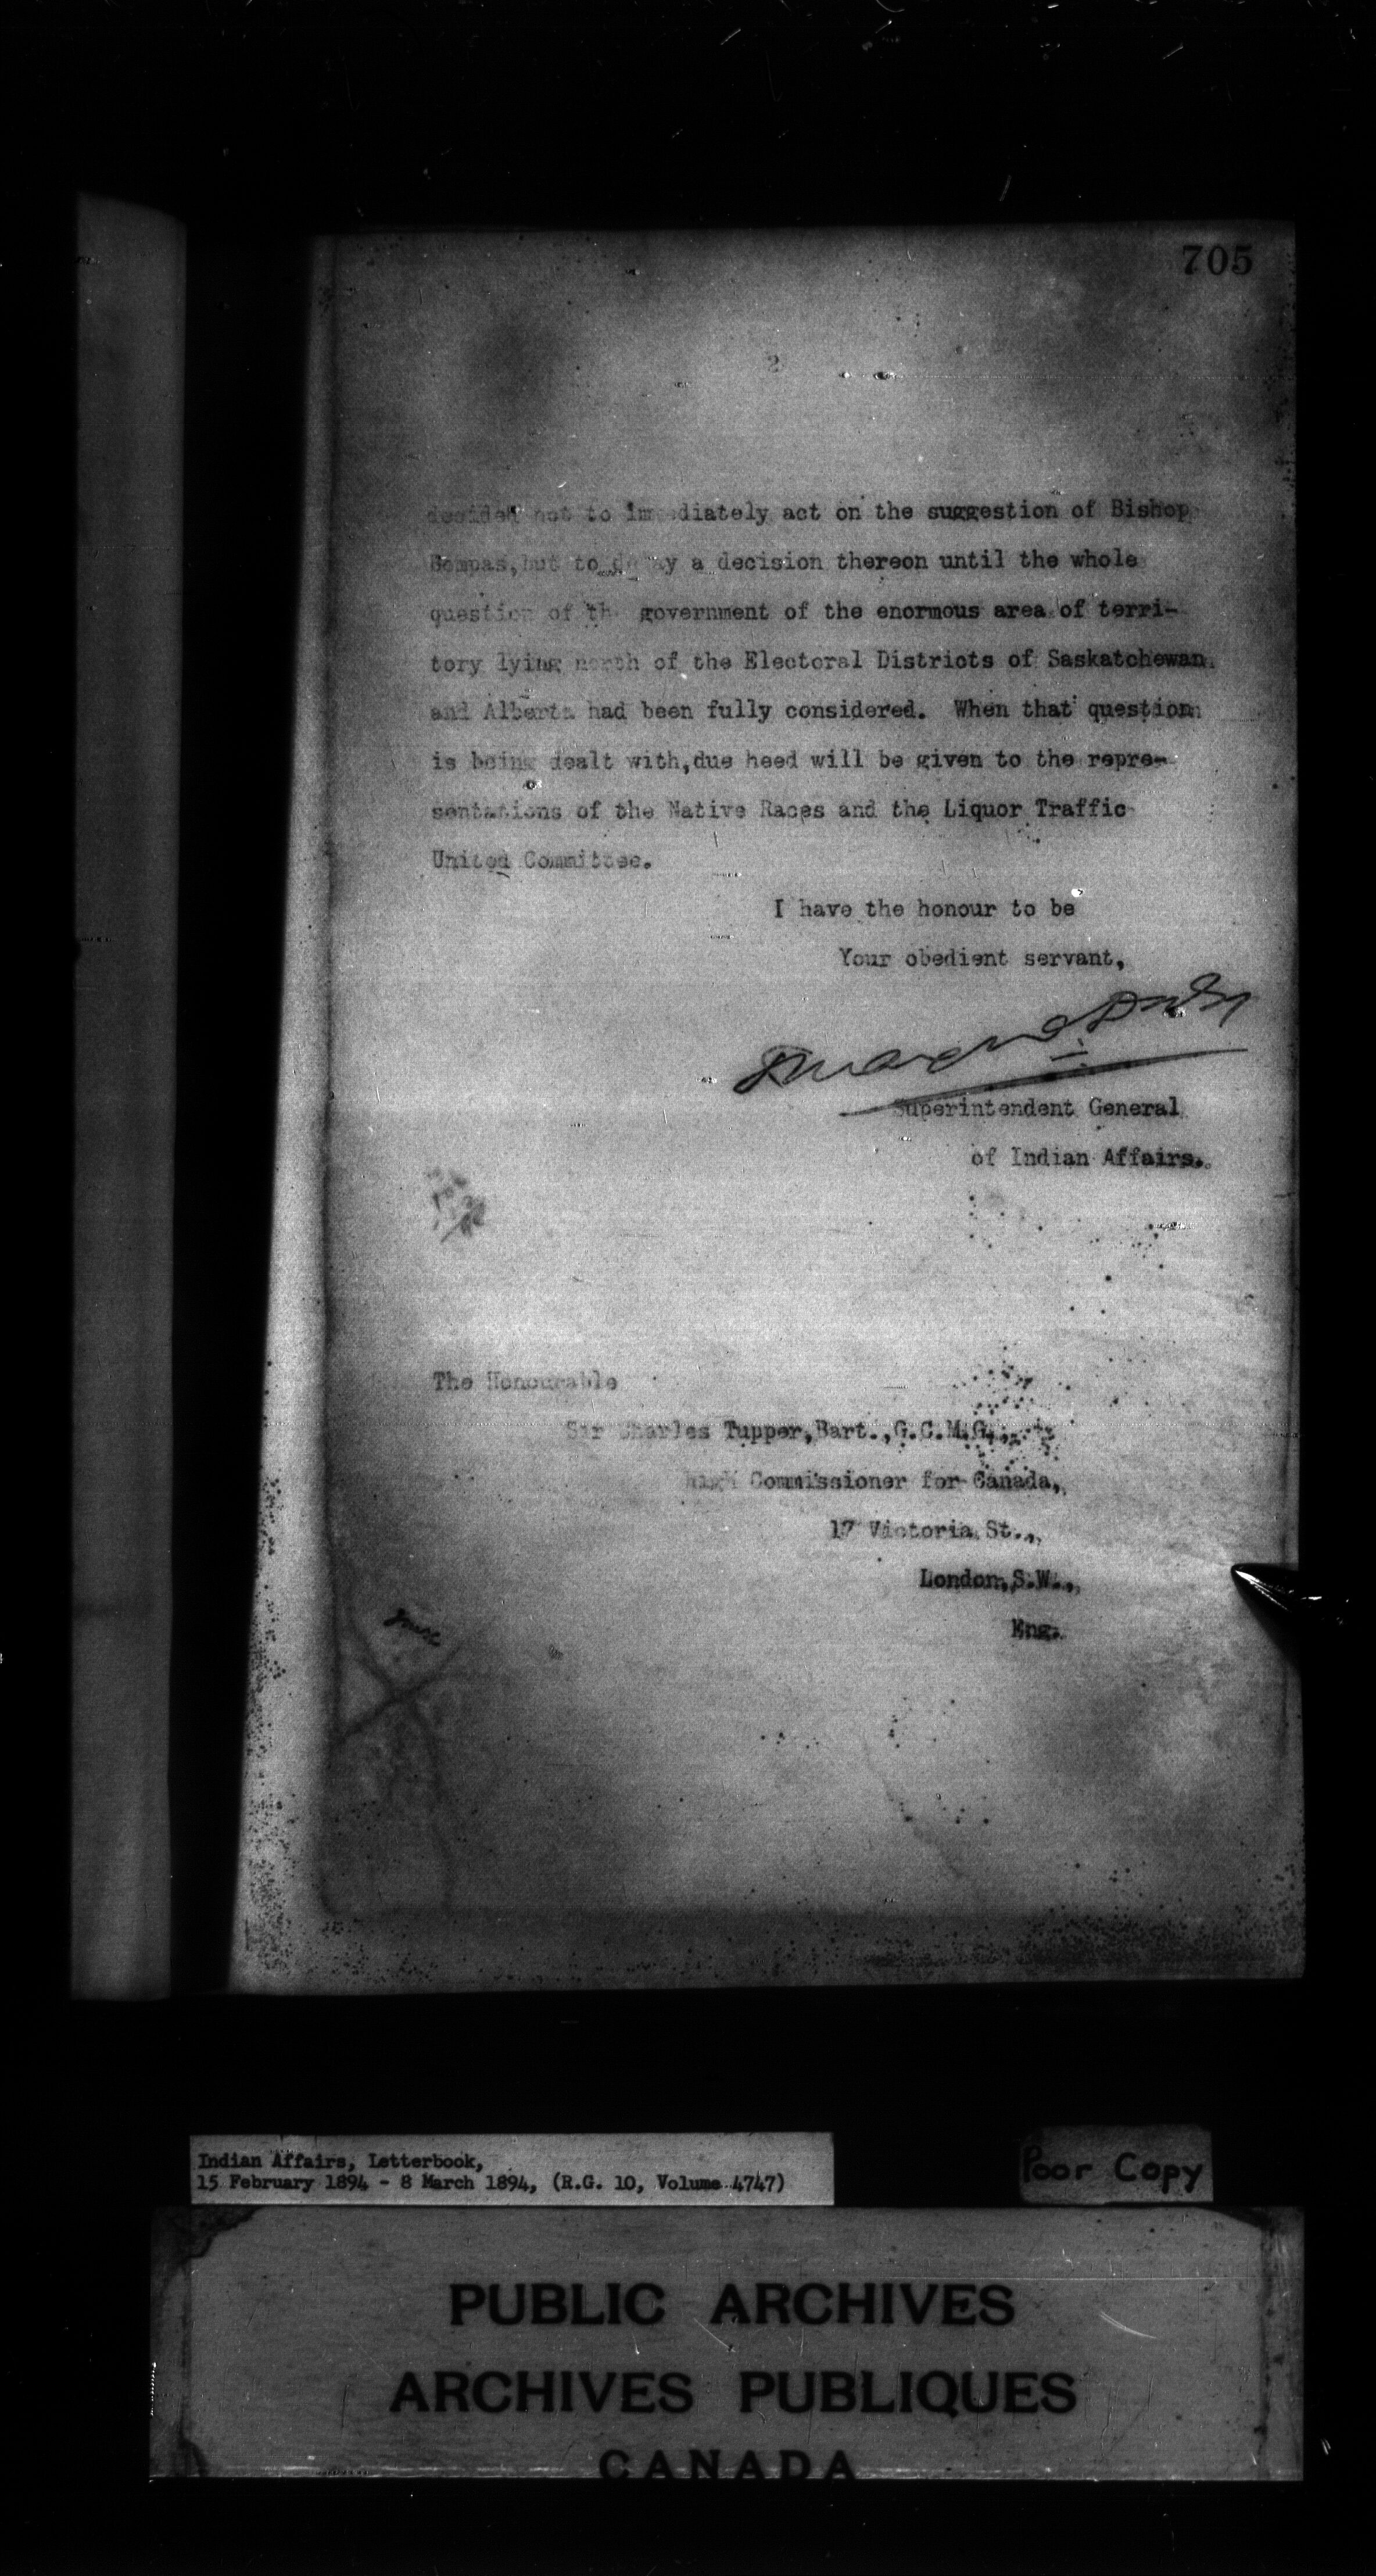 705
2
decided not to immediately act on the suggestion of Bishop
Bompas, but to delay a decision thereon until the whole
question of the government of the enormous area of terri-
tory lying north of the Electoral Districts of Saskatchewan
and Alberta had been fully considered. When that question
is being dealt with, due heed will be given to the repre-
sentations of the Native Races and the Liquor Traffic
United Committee.
I have the honour to be
Your obedient servant,
Superintendent General
of Indian Affairs.
The Honourable
Sir Charles Tupper, Bart., G.C.M.G.,
High Commissioner for Canada,
17 Victoria St.,
London, S.W.,
Eng.
Indian Affairs, Letterbook,
15 February 1894 - 8 March 1894, (R.G. 10, Volume 4747)
Poor Copy
PUBLIC ARCHIVES
ARCHIVES PUBLIQUES
CANADA